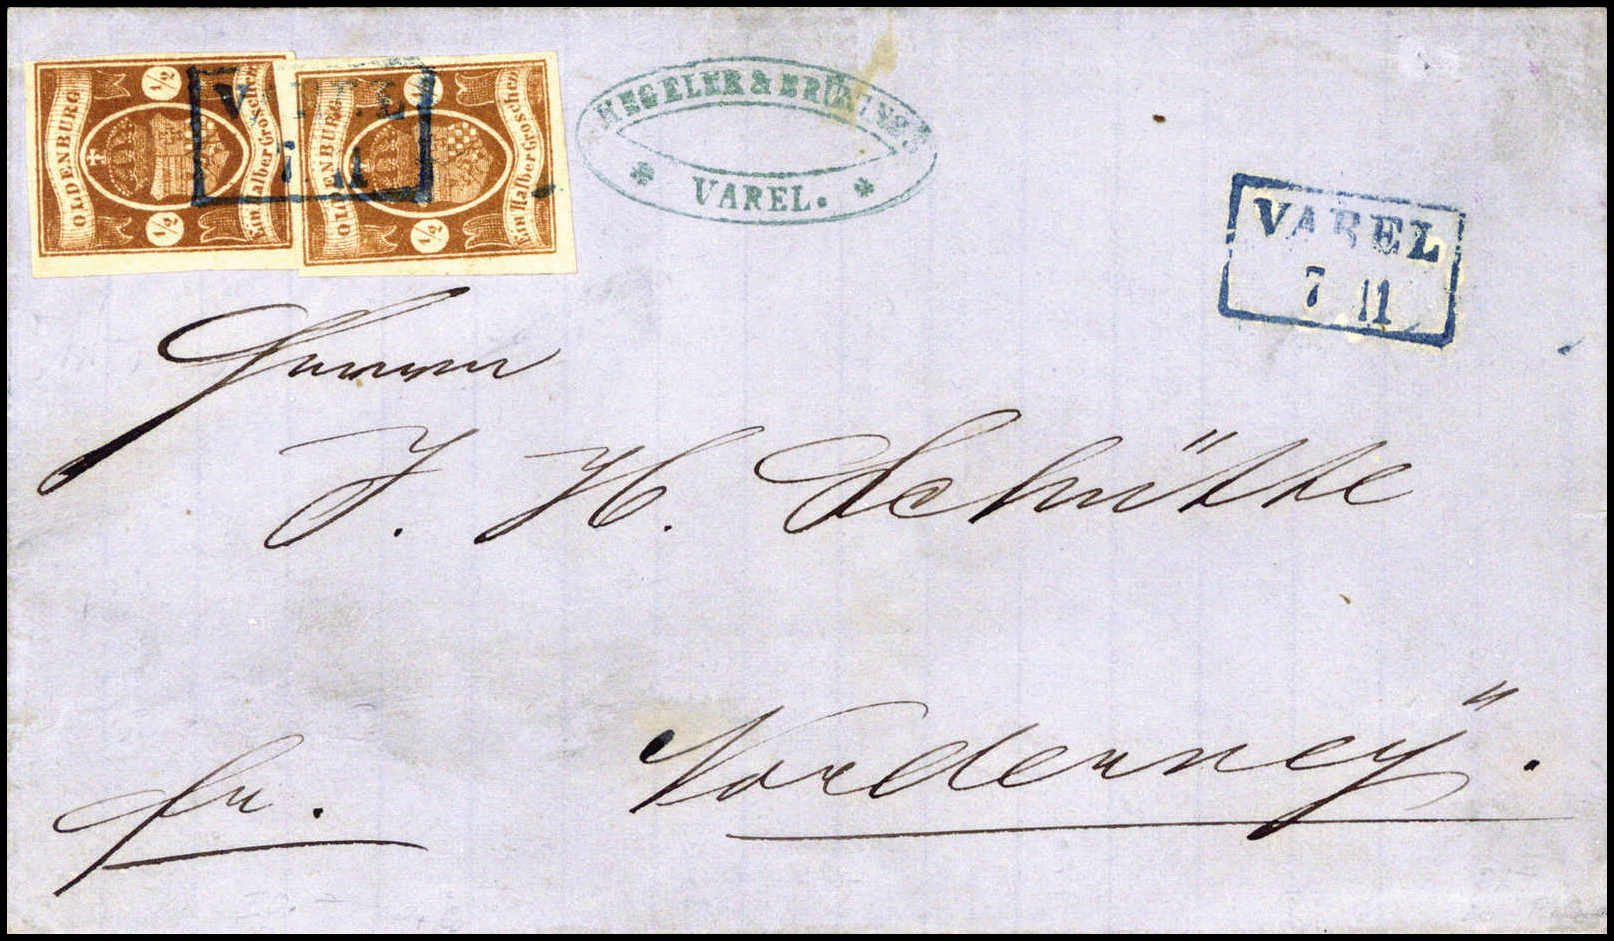 OLDENBURG
1/2
1/2
Ein Halber Groschen
OLDENBURG
1/2
1/2
Ein Halber Groschen
VAREL
7 11
HEGELER & BRÜNINGS
* VAREL. *
VAREL
7 11
Herrn
J. H. Schütte
fr. Norderneÿ.